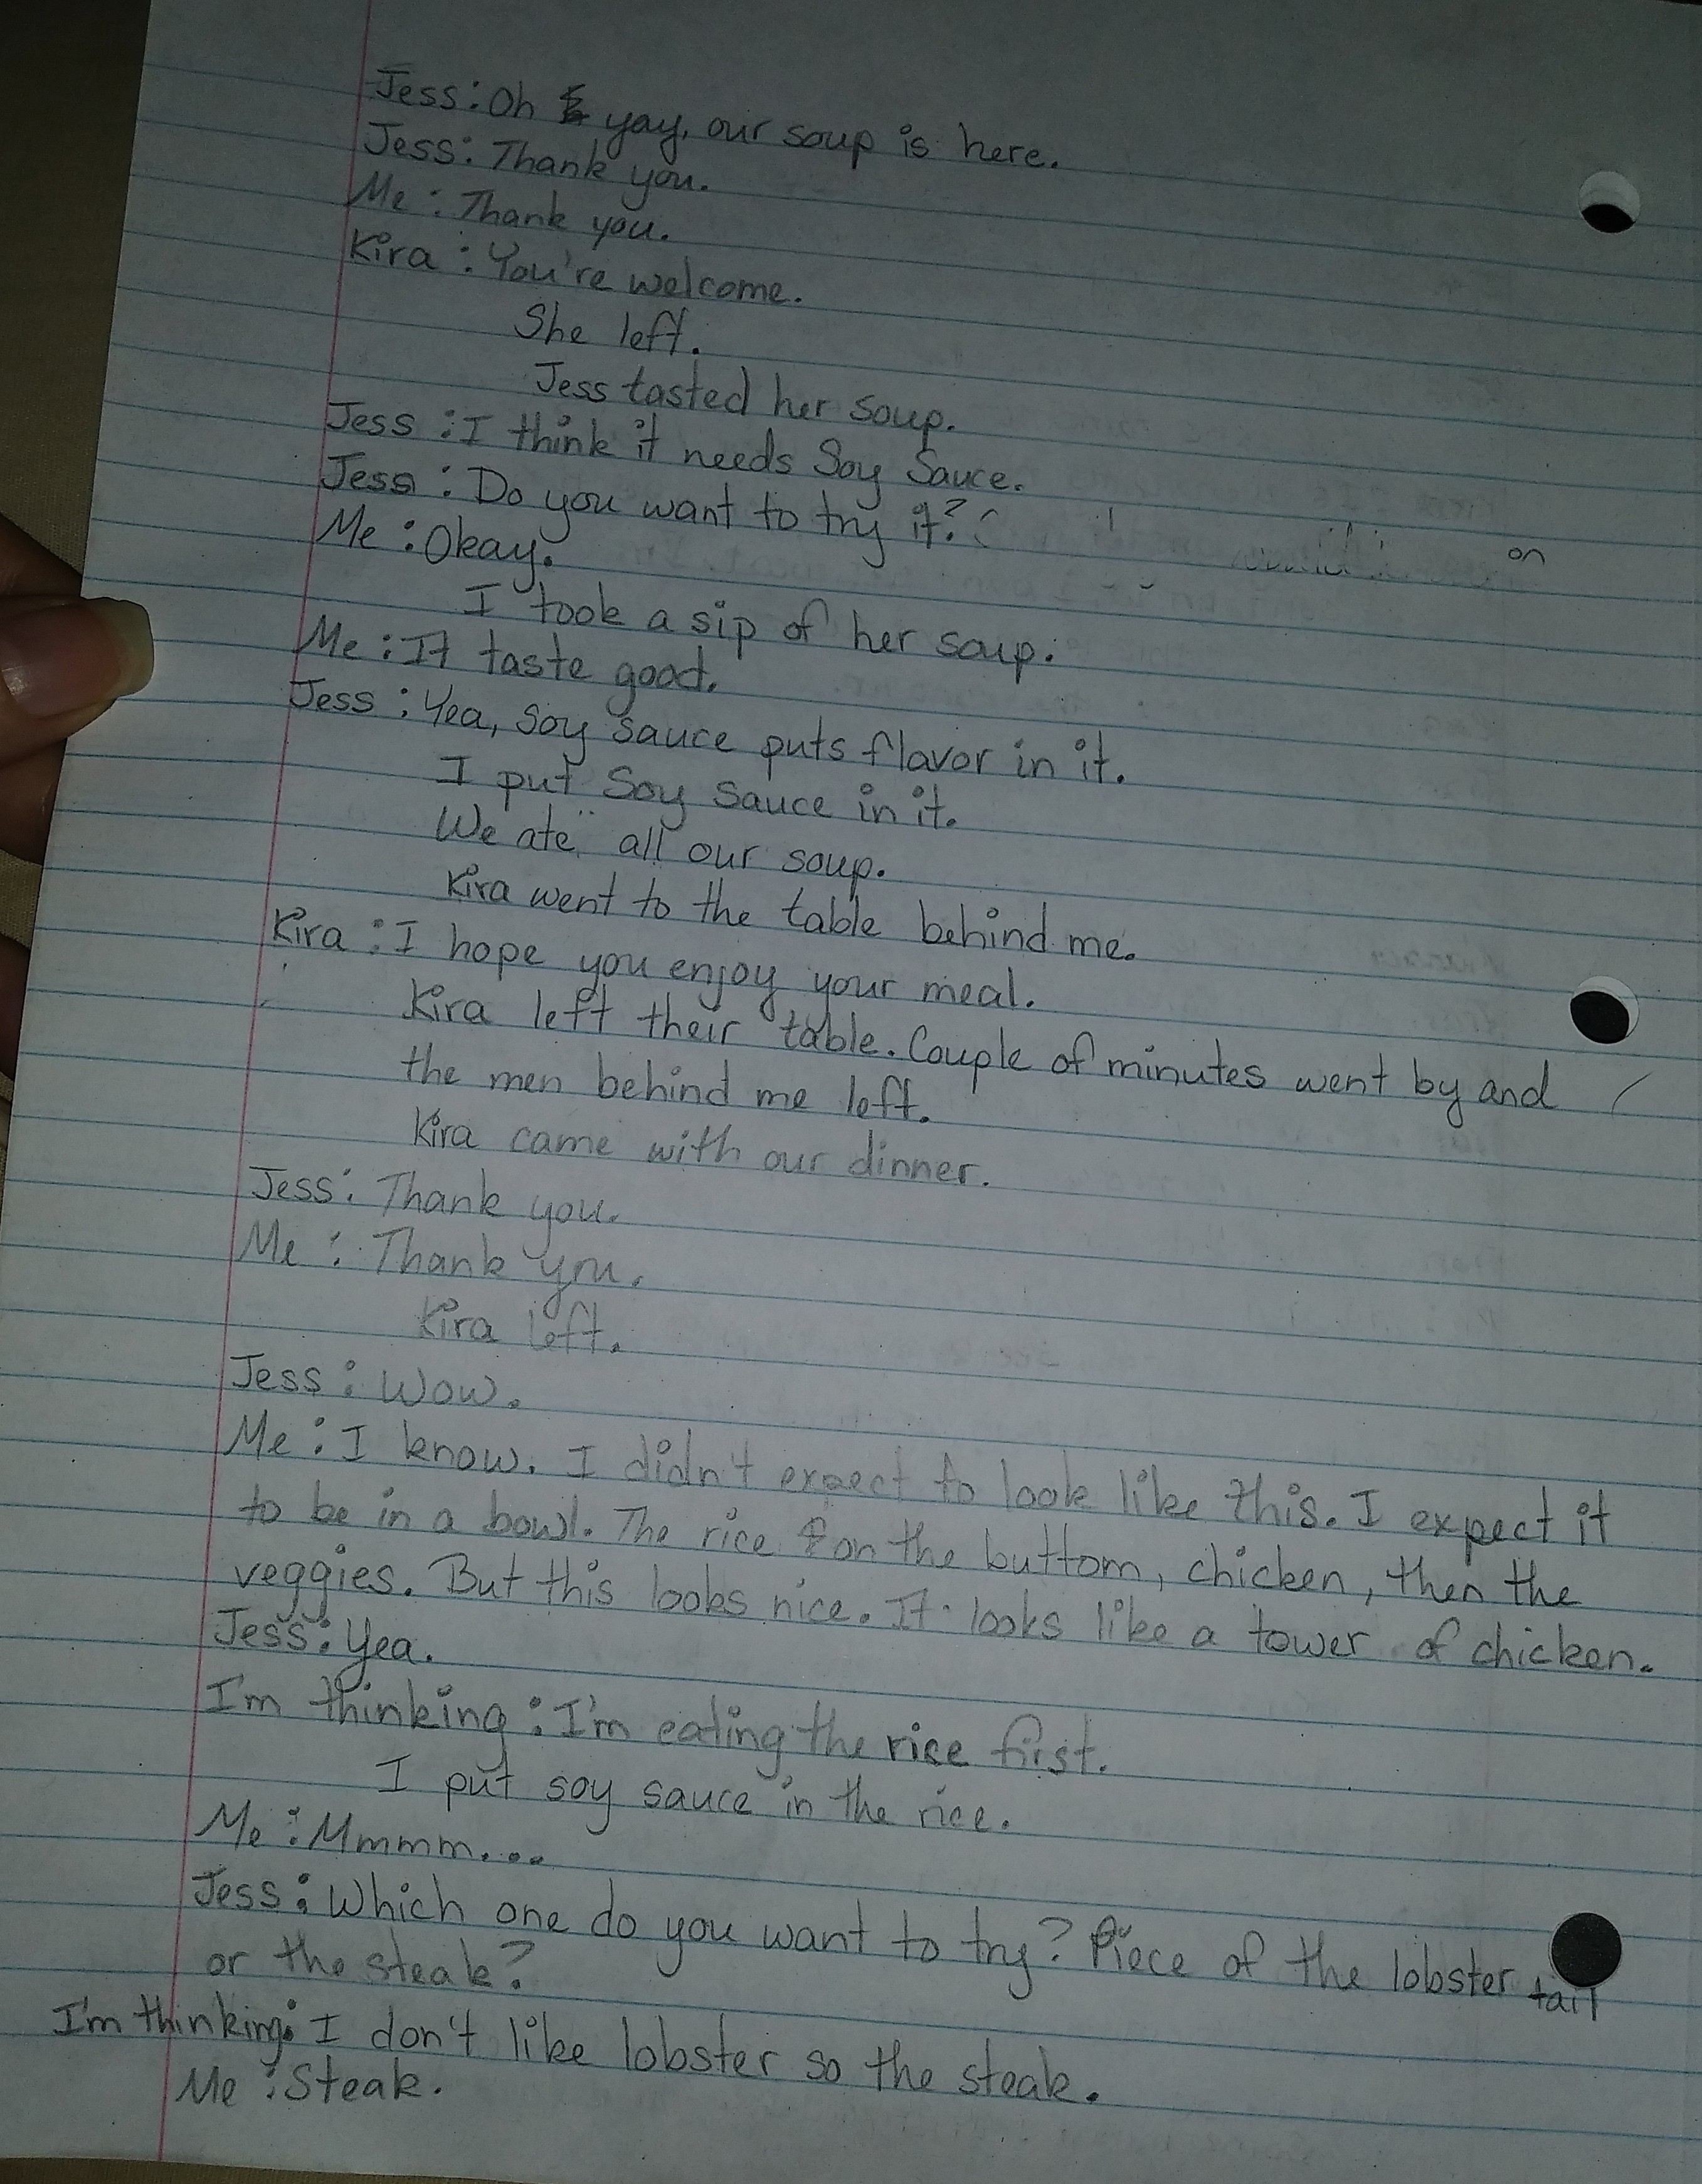 Jess: Oh yay, our soup is here.
Jess: Thank you.
Me: Thank you.
Kira: You're welcome.
She left.
Jess tasted her soup.
Jess: I think it needs Soy Sauce.
Jess: Do you want to try it?
on
Me: Okay.
I took a sip of her soup.
Me: It taste good.
Jess: Yea, Soy Sauce puts flavor in it.
I put Soy Sauce in it.
We ate all our soup.
Kira went to the table behind me.
Kira: I hope you enjoy your meal.
Kira left their table. Couple of minutes went by and
the men behind me left.
Kira came with our dinner.
Jess: Thank you.
Me: Thank you.
Kira left.
Jess: Wow.
Me: I know. I didn't expect to look like this. I expect it
to be in a bowl. The rice on the buttom, chicken, then the
veggies. But this looks nice. It looks like a tower of chicken.
Jess: Yea.
I'm thinking: I'm eating the rice first.
I put soy sauce in the rice.
Me: Mmmm....
Jess: Which one do you want to try? Piece of the lobster tail
or the steak?
I'm thinking: I don't like lobster so the steak.
Me: Steak.